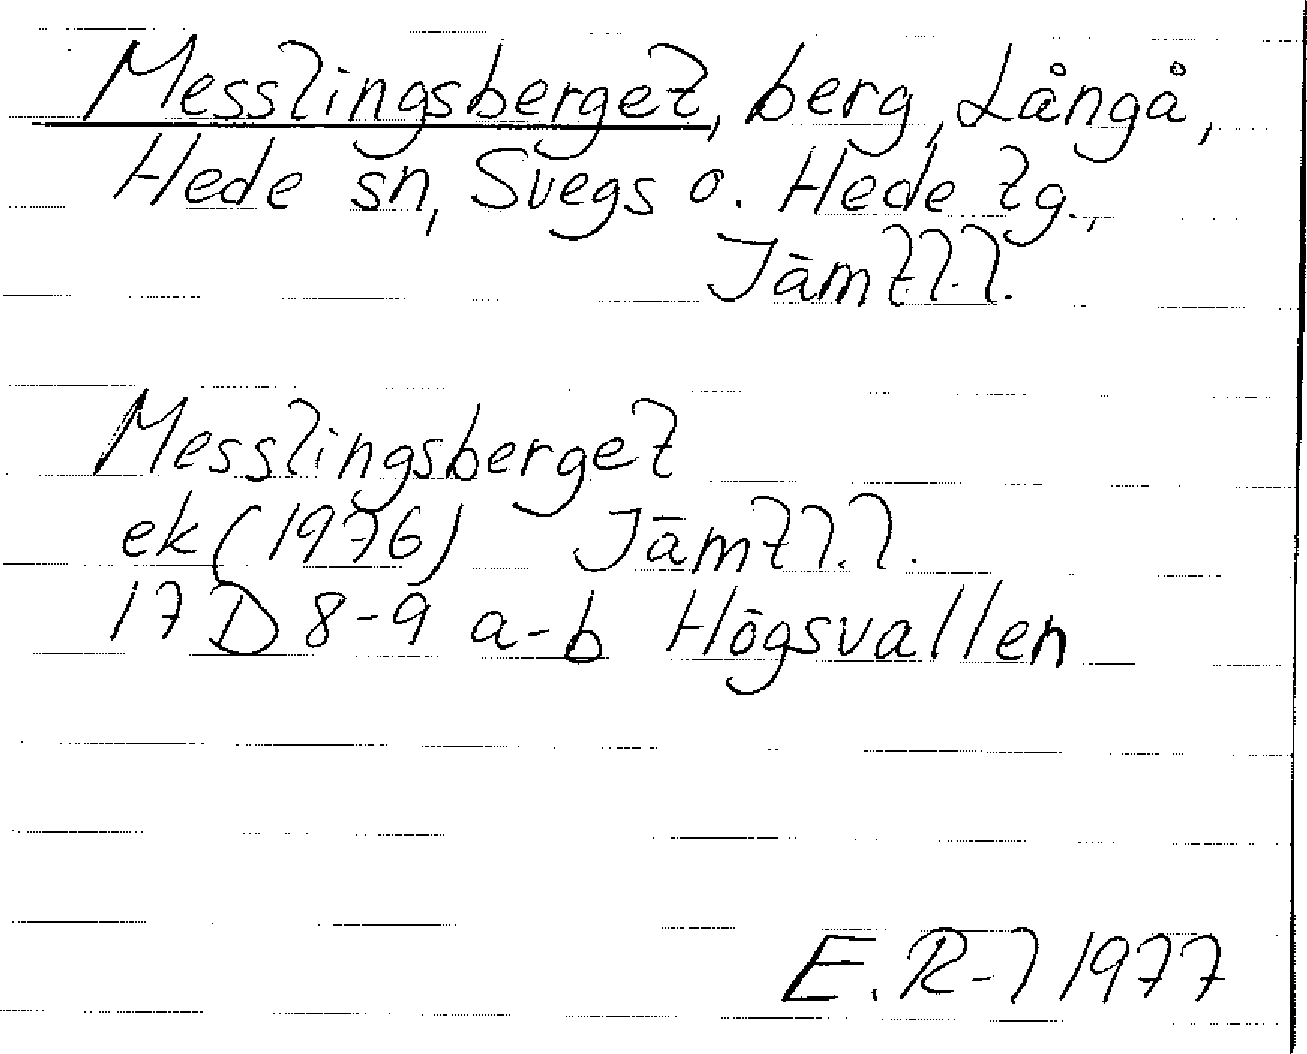 Messlingsberget, berg, Långå,
Hede sn, Svegs o. Hede tg.,
Jämtl. l.
Messlingsberget
ek (1976) Jämtl. l.
17 D 8-9 a-b Högsvallen
E. R-l 1977